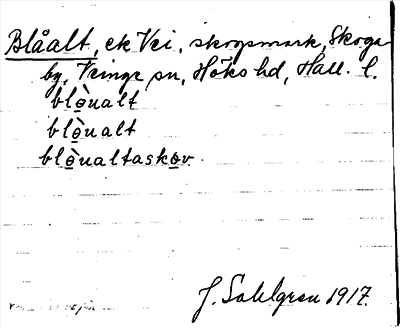 Blåalt, ek Vei, skogsmark, Skoga
by, Veinge sn, Höks hd, Hall. l.
blò̲ualt
blò̲ualt
blò̲ualtasko̲v.
J. Sahlgren 1917.